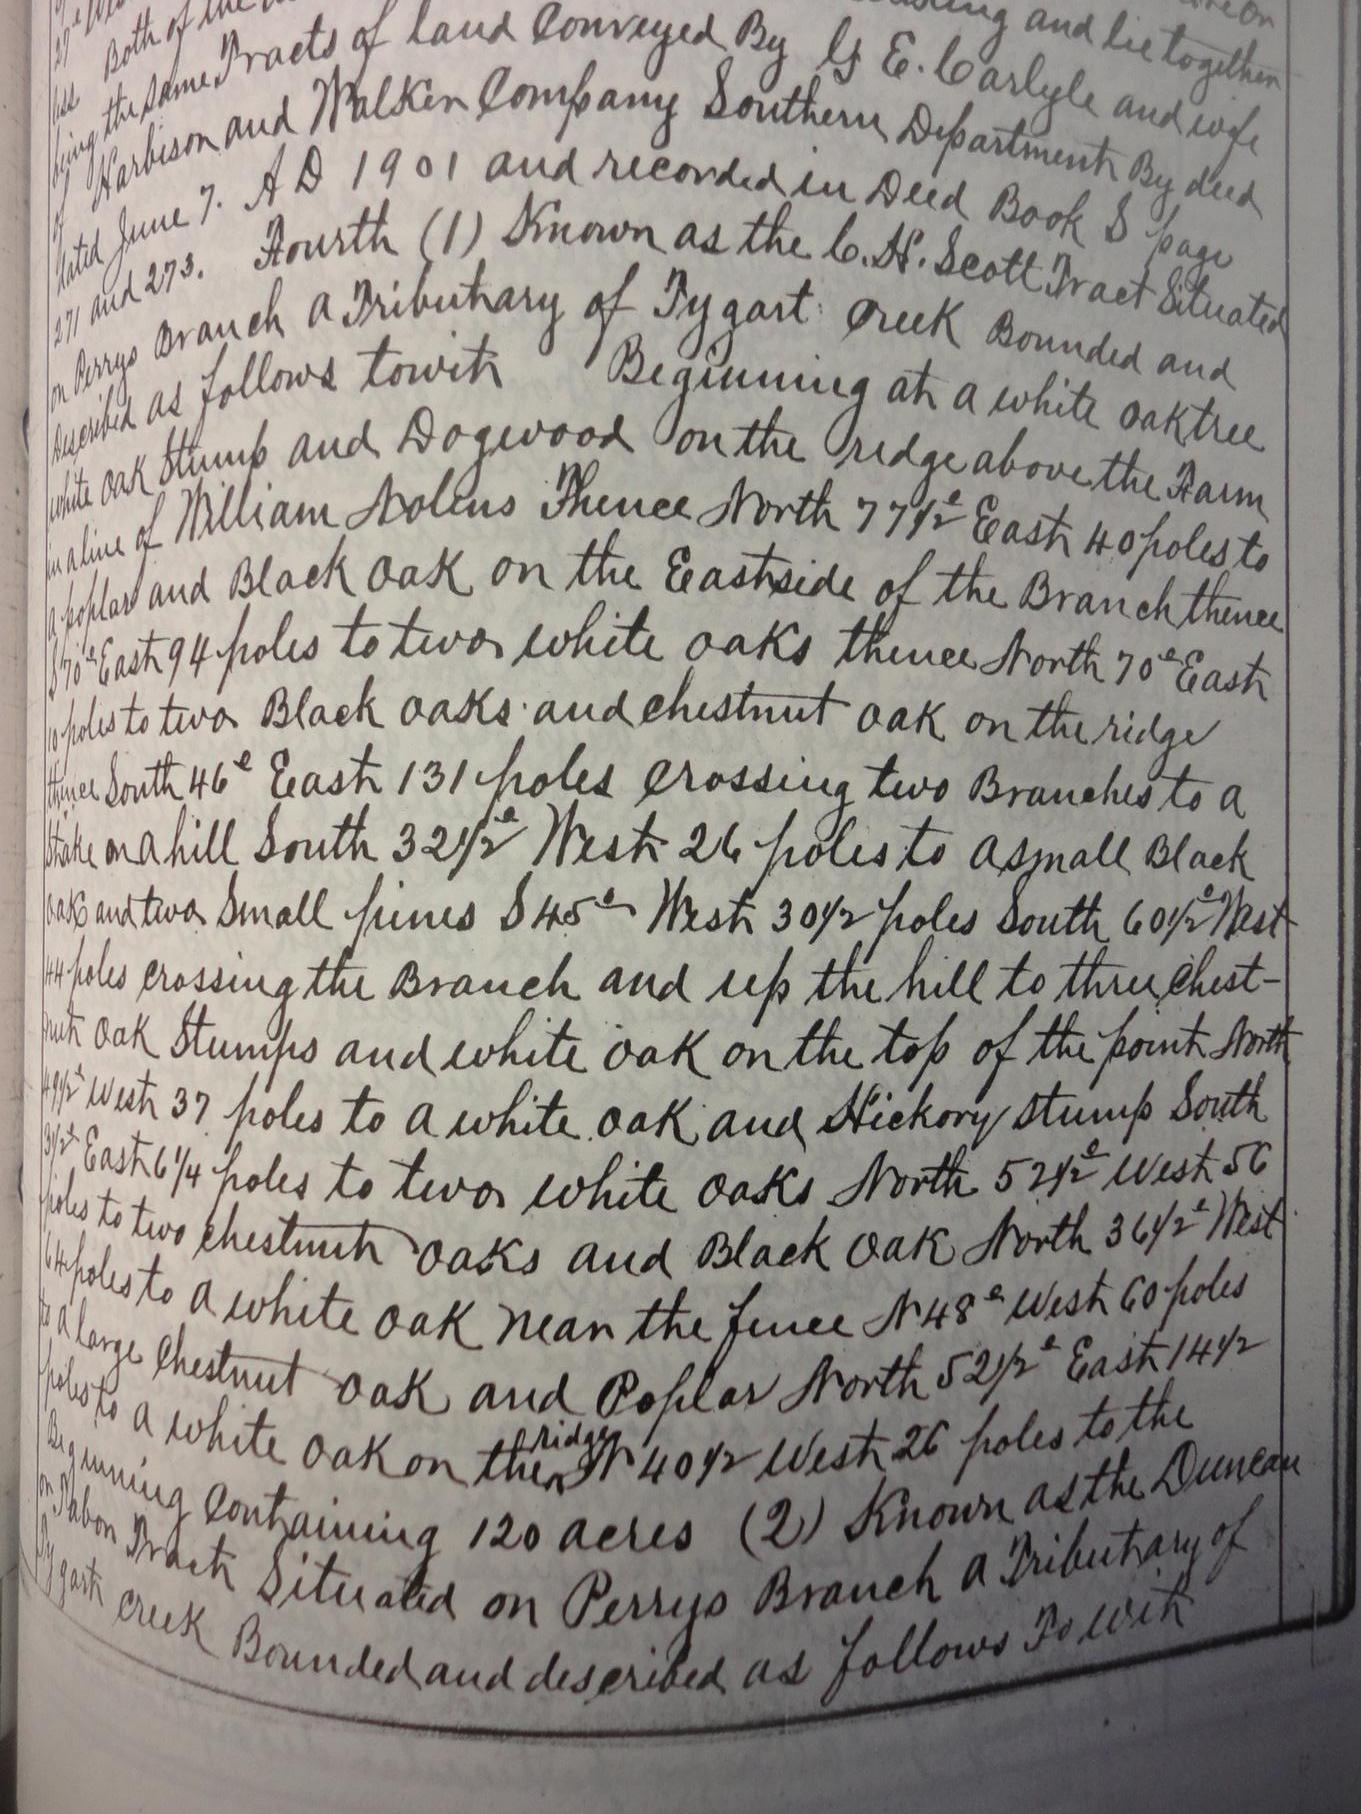 less Both of the and lie together
being the same Tracts of land Conveyed By G E. Carlyle and wife
of Harbison and Walker Company Southern Department By deed
dated June 7. A D 1901 and recorded in Deed Book S page
271 and 273. Fourth (1) Known as the C. H. Scott Tract Situated
on Perrys Branch a Tributary of Tygart Creek Bounded and
described as follows towit Beginning at a white oak tree
white oak Stump and Dogwood on the ridge above the Farm
in a line of William Nolens Thence North 77 1/2° East 40 poles to
a poplar and Black oak on the East side of the Branch thence
S 70° East 94 poles to two white oaks thence North 70° East
10 poles to two Black oaks and chestnut oak on the ridge
thence South 46° East 131 poles crossing two Branches to a
stake on a hill South 32 1/2° West 26 poles to a small Black
oak and two Small pines S 45° West 30 1/2 poles South 60 1/2° West
44 poles crossing the Branch and up the hill to three Chest-
nut oak Stumps and white oak on the top of the point North
49 1/2° West 37 poles to a white oak and Hickory stump South
31/2° East 6 1/4 poles to two white oaks North 52 1/2° West 56
poles to two chestnut oaks and Black oak North 36 1/2° West
64 poles to a white oak near the fence N 48° West 60 poles
to a large Chestnut oak and Poplar North 52 1/2° East 14 1/2
poles to a white oak on the ridge N 40 1/2 West 26 poles to the
Beginning Containing 120 acres (2) Known as the Duncan
or Tabon Tract Situated on Perrys Branch a Tributary of
Tygart creek Bounded and described as follows To wit